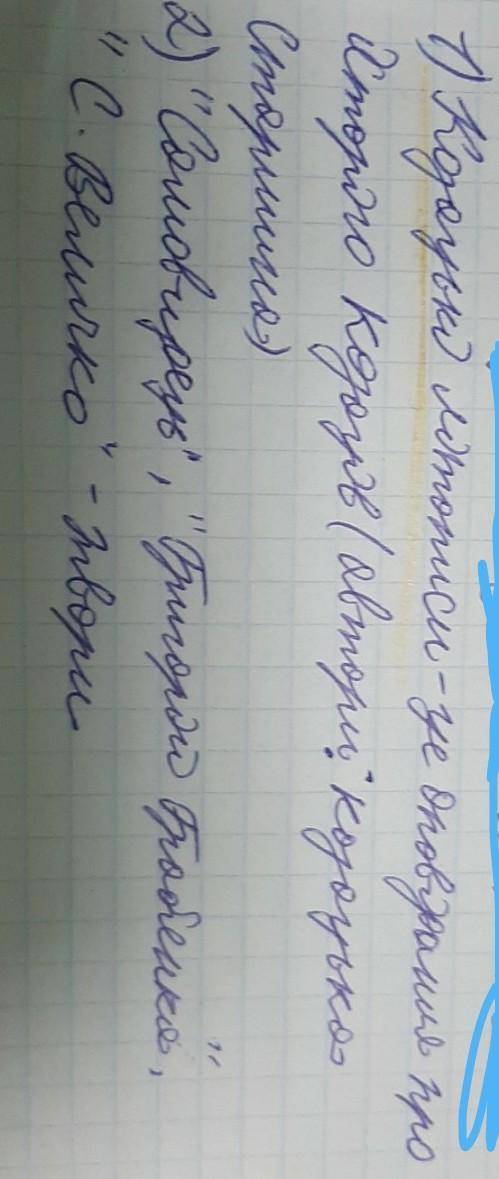 1) Козацькі літописи - це оповідання про
історію козаців (автори: козацька
старшина)
2) "Самовидець", "Григорій Грабенка",
"С. Величко" - твори